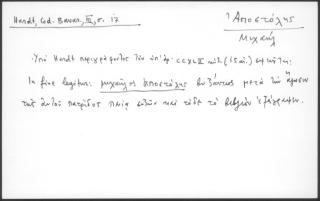 Hardt, Cod. Bavar., III, σ. 17
Ἀποστόλης
Μιχαήλ
Ὑπὸ Hardt περιγράφεται ὑπ' ἀρ. CCXLII κωδ. (15 αἰ.)
In fine legitur: μιχαῆλος ἀποστόλης βυζάντιος μετὰ τὴν ἅλωσιν
τῆς αὐτοῦ πατρίδος πενίᾳ συζῶν καὶ τόδε τὸ βιβλίον ἐξέγραψεν.